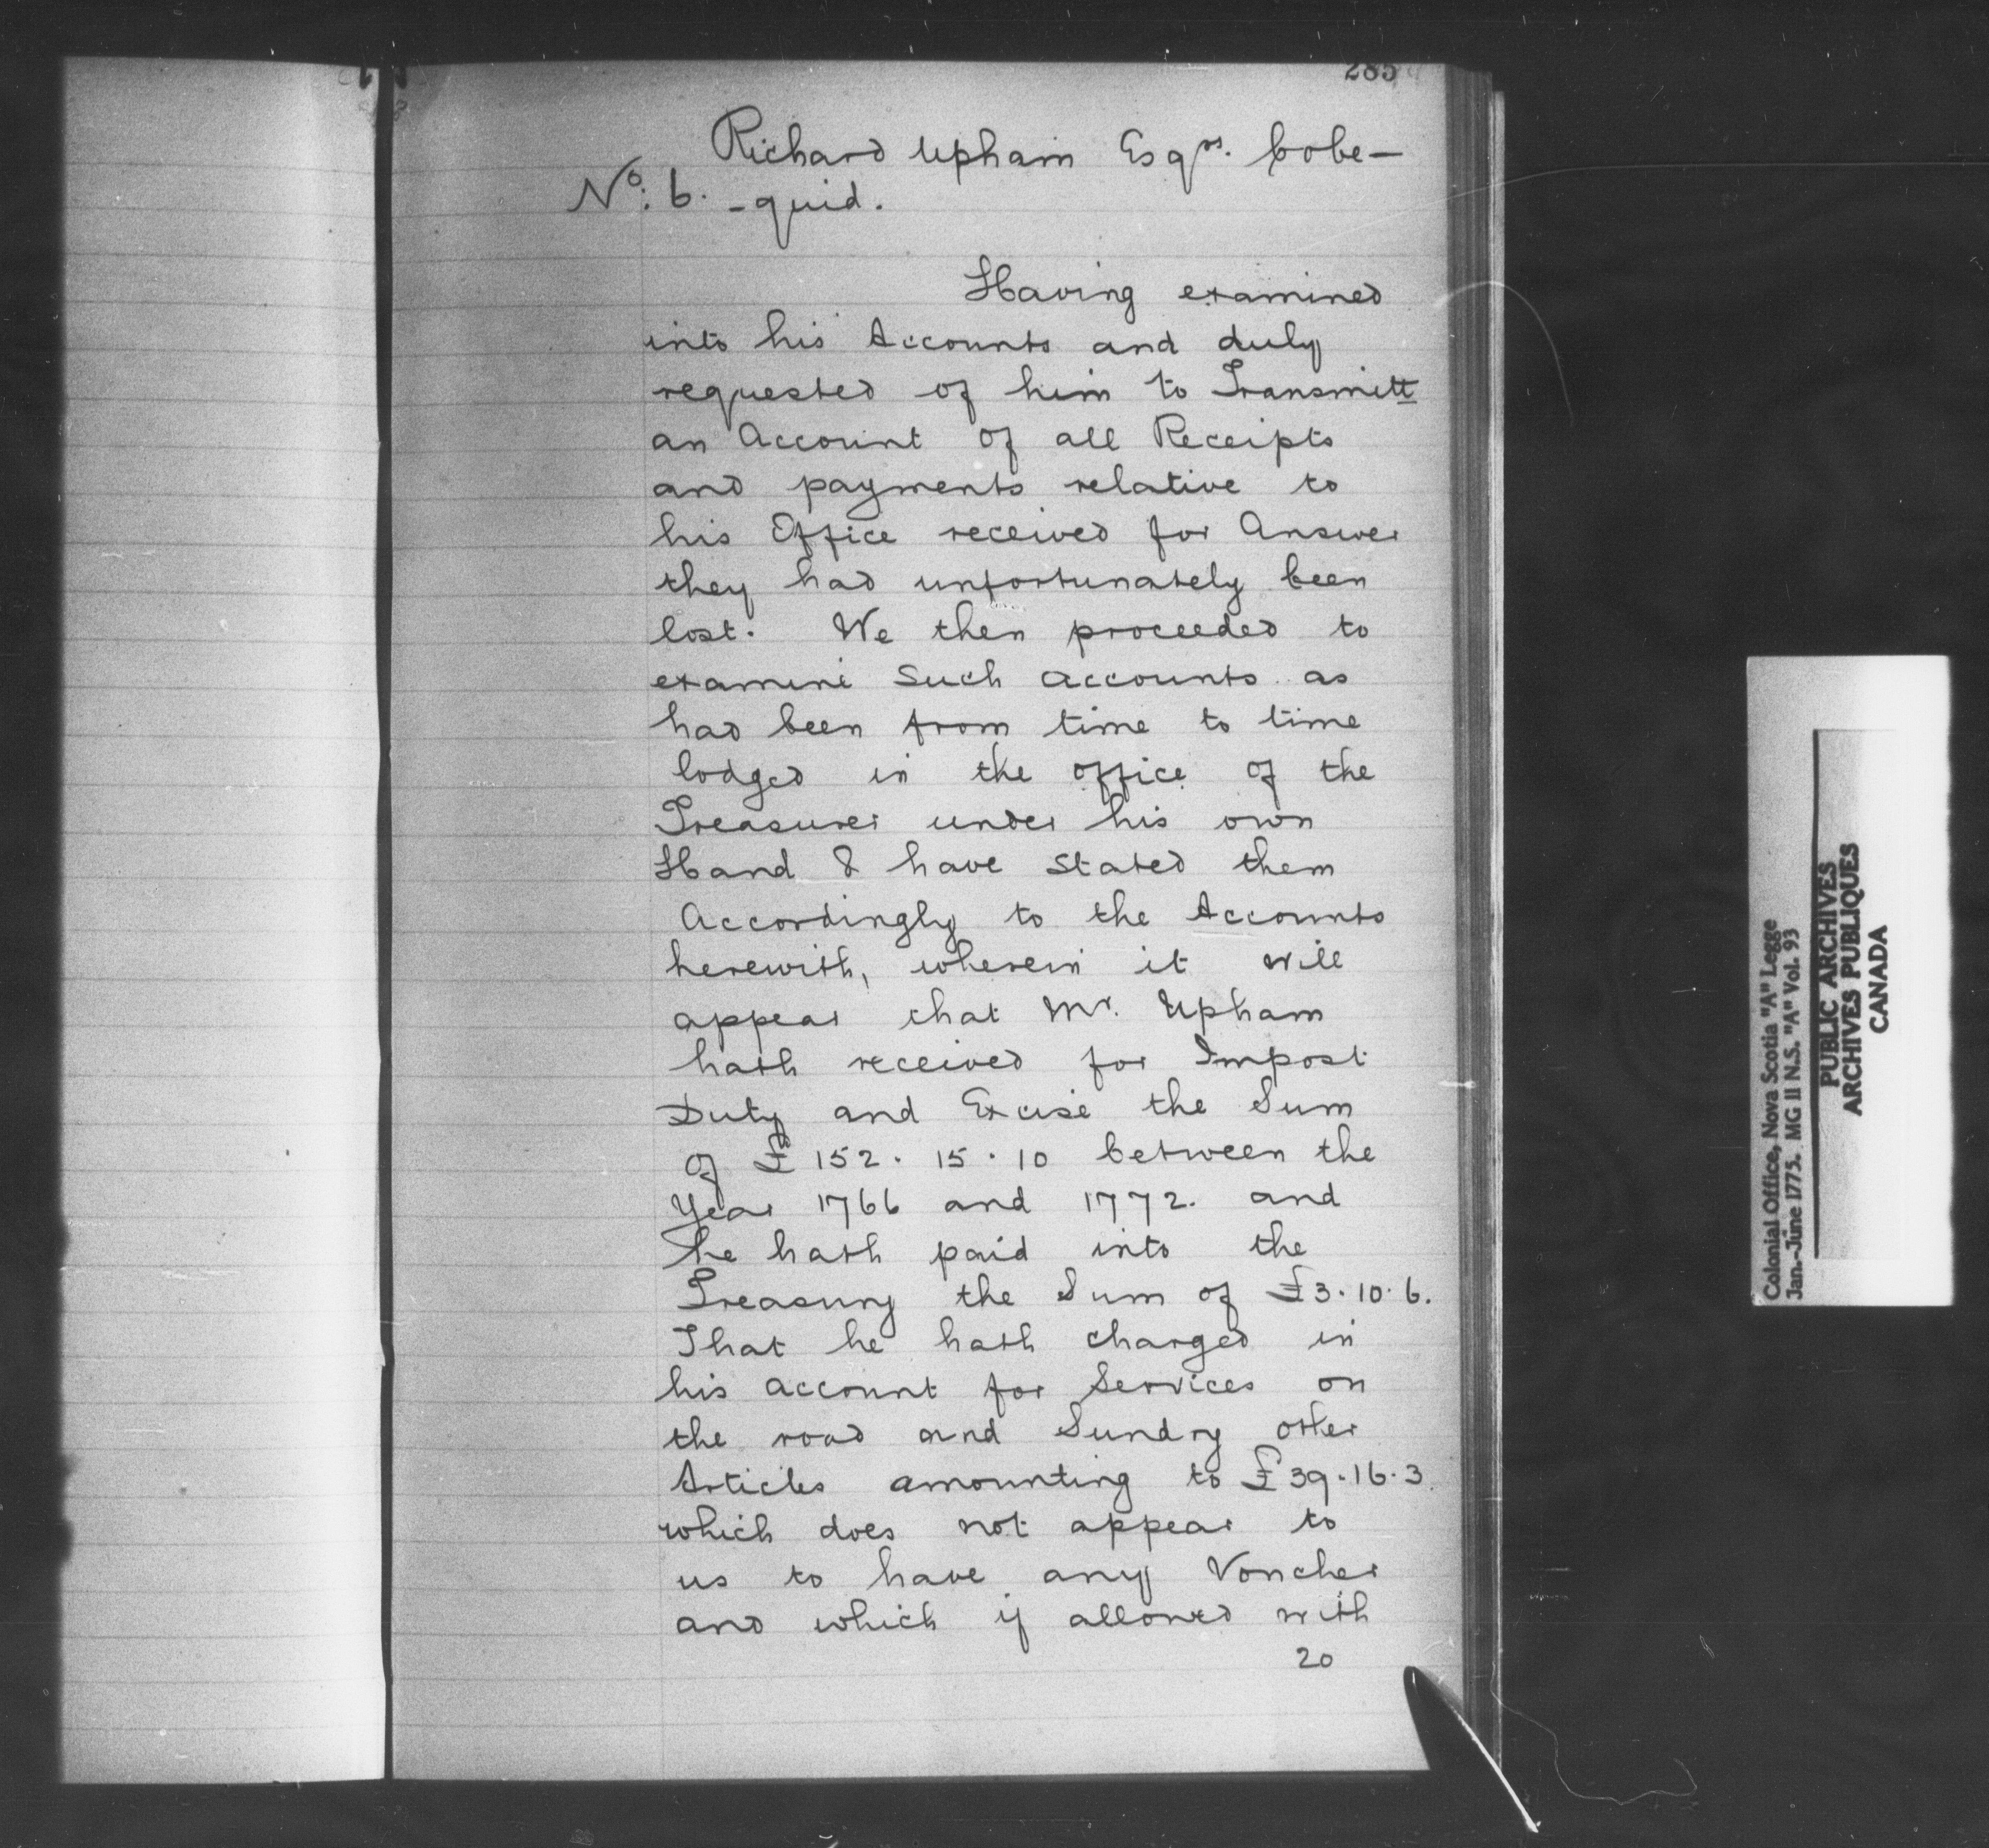 285
Richard Upham Esqrs. Cobe-
No: 6. -quid.
Having examined
into his Accounts and duly
requested of him to Transmitt
an Account of all Receipts
and payments relative to
his Office received for Answer
they had unfortunately been
lost. We then proceeded to
examine Such accounts as
had been from time to time
lodged in the office of the
Treasurer under his own
Hand & have Stated them
Accordingly to the Accounts
herewith, wherein it will
appear that Mr. Upham
hath received for Impost
Duty and Excise the Sum
of £152. 15. 10 between the
Year 1766 and 1772. and
he hath paid into the
Treasury the Sum of £3. 10. 6.
That he hath charged in
his account for Services on
the road and Sundry other
Articles amounting to £39. 16. 3.
which does not appear to
us to have any Voucher
and which if allowed with
20
Colonial Office, Nova Scotia "A" Legge
Jan.-June 1775. MG II N.S. "A" Vol. 93
PUBLIC ARCHIVES
ARCHIVES PUBLIQUES
CANADA